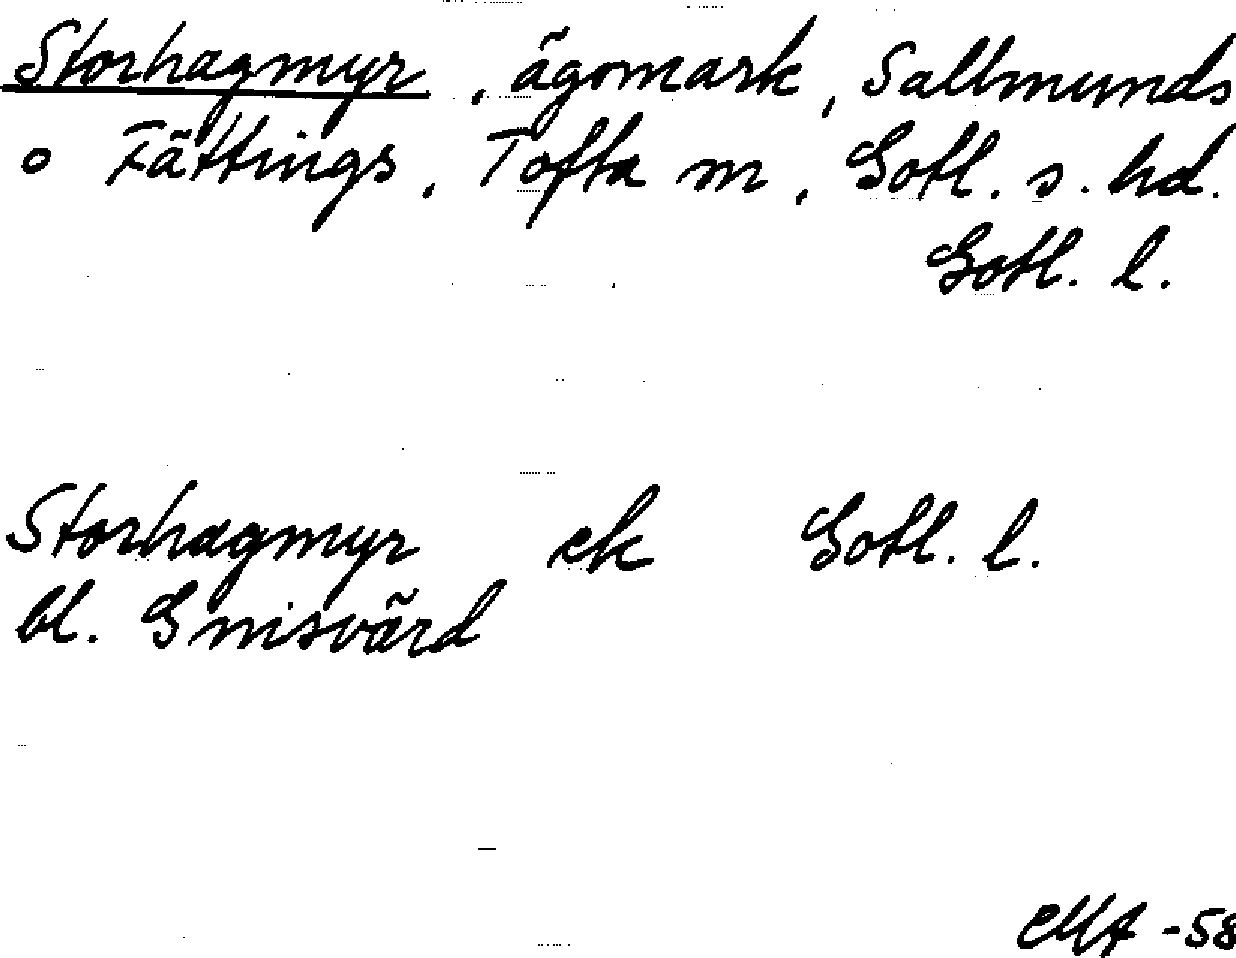 Storhagmyr, ägomark, Sallmunds
o Fättings, Tofta sn, Gotl. s. hd.
Gotl. l.
Storhagmyr ek Gotl. l.
bl. Gnisvärd
-58